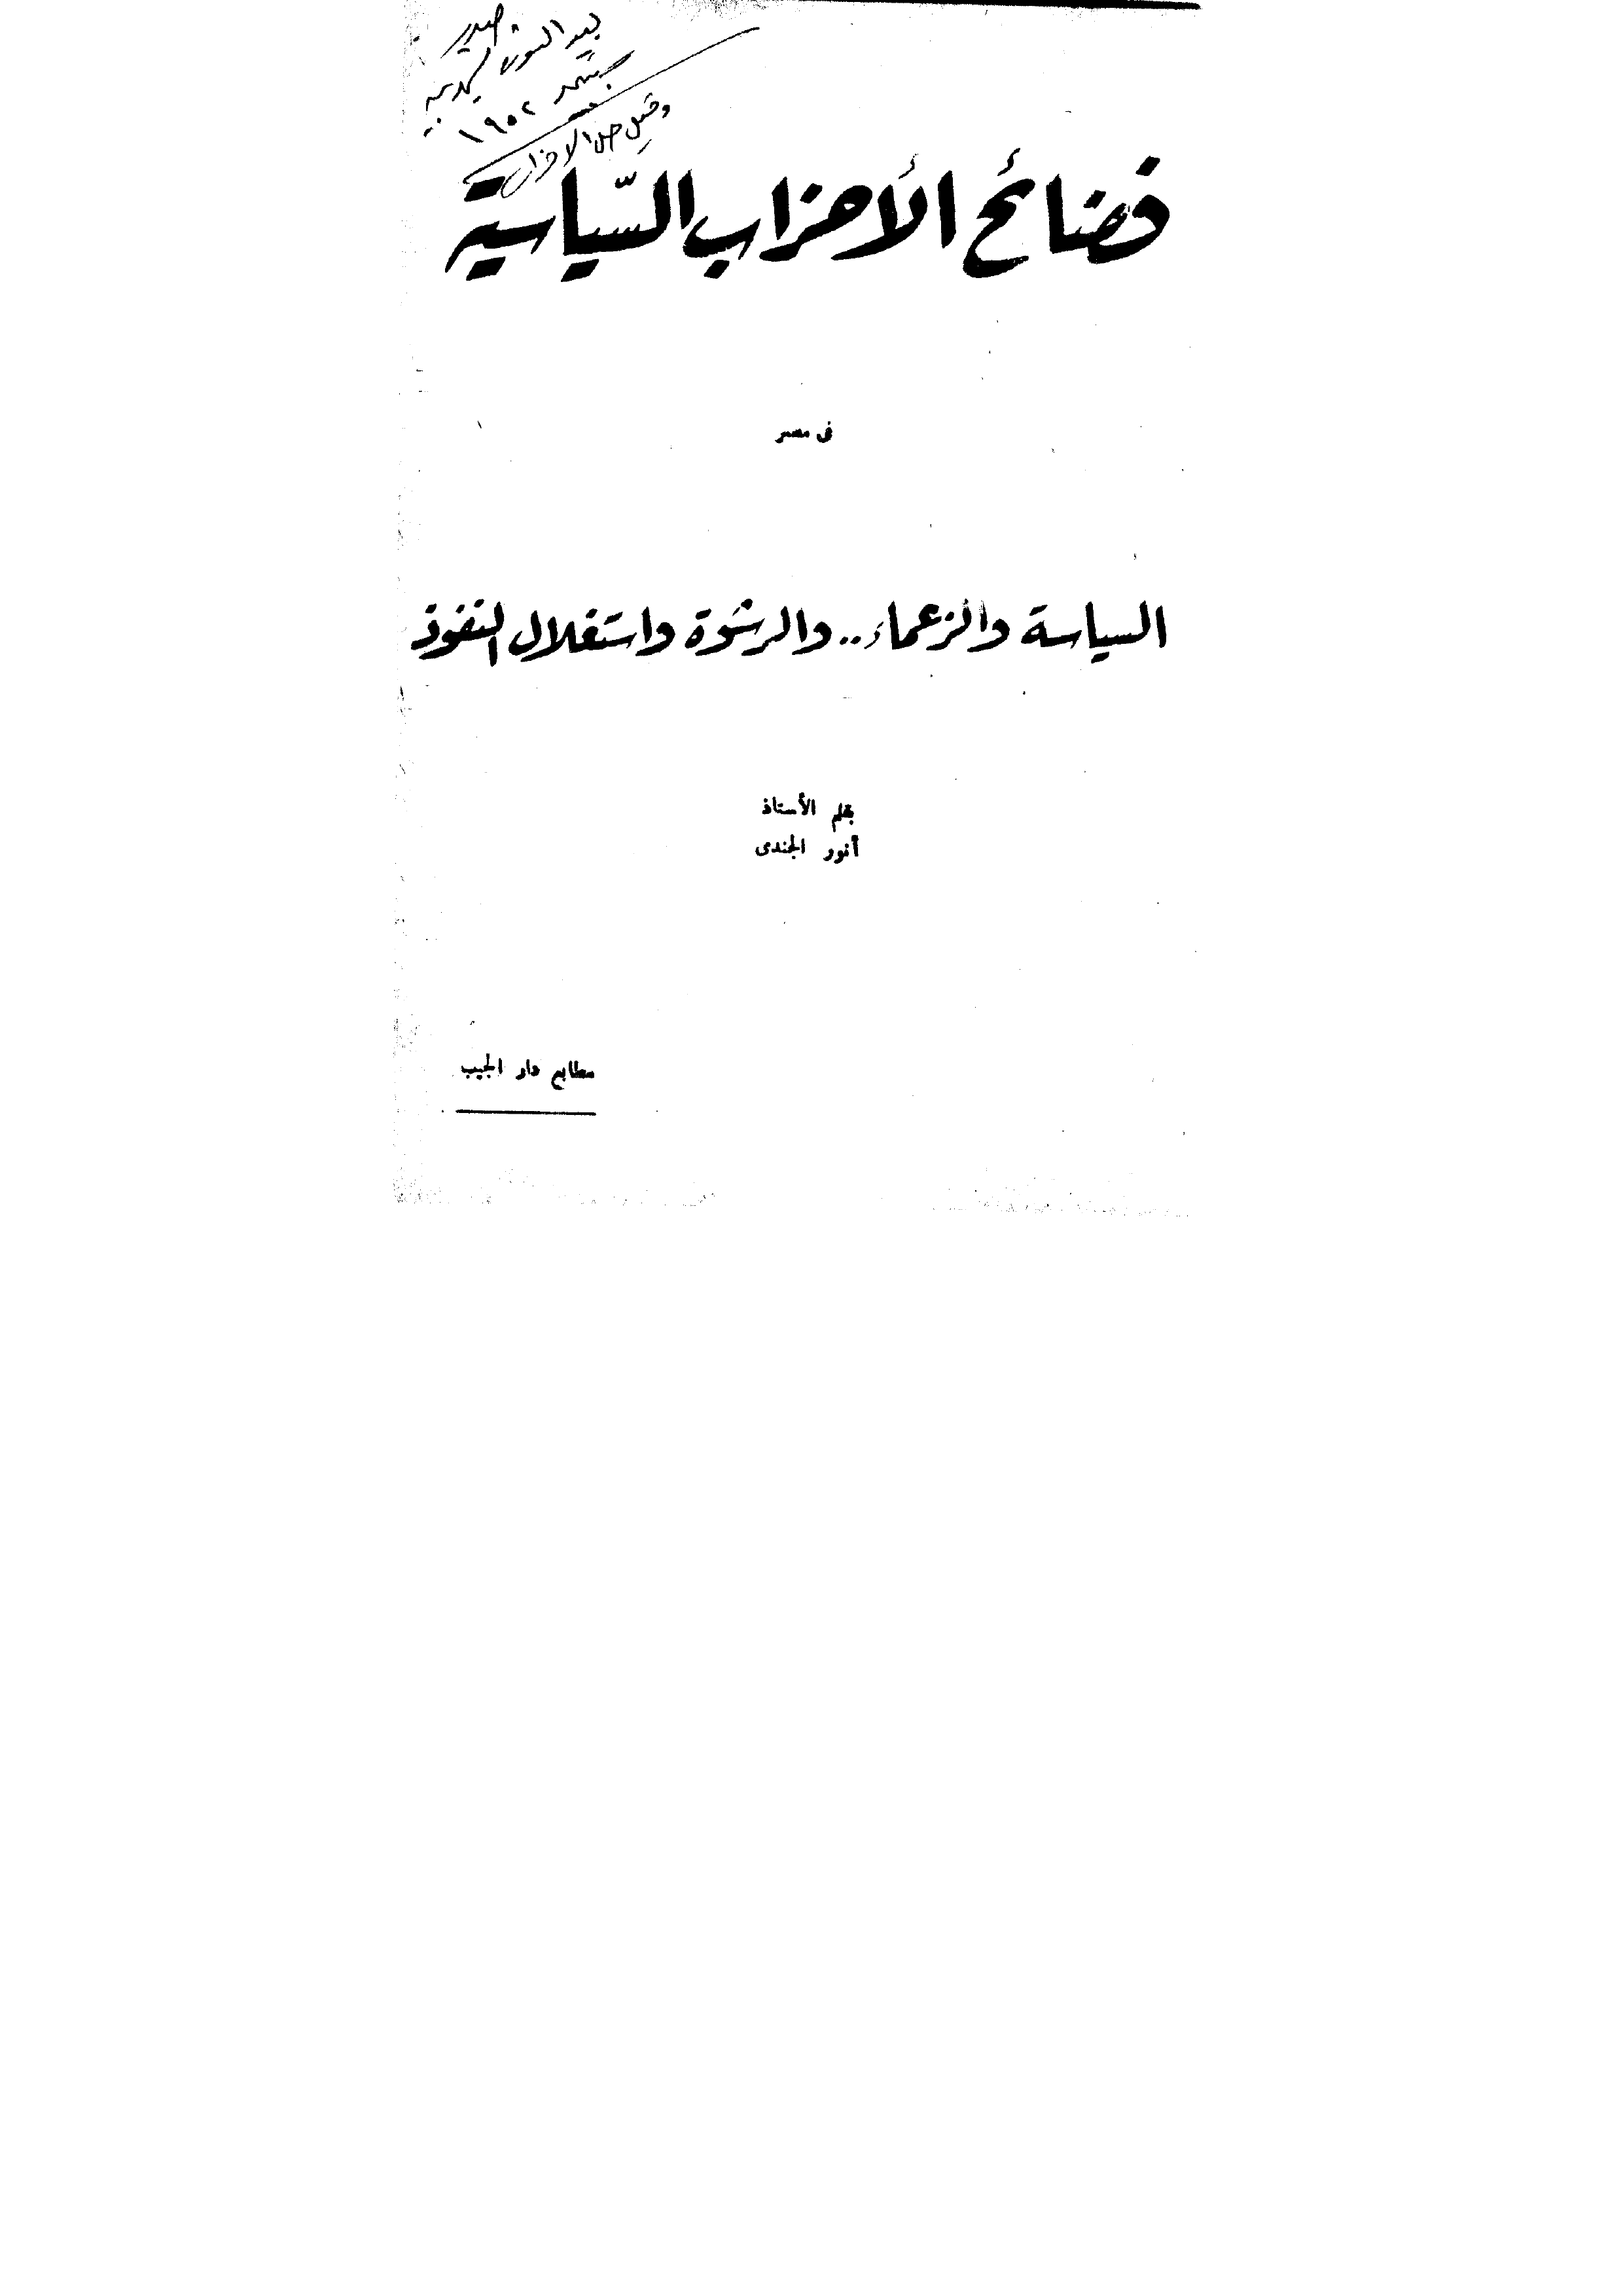 صدر
بعد الثورة
سبتمبر ١٩٥٢
وقبل حل الأحزاب
فضائح الأحزاب السّياسية
فى مصر
السياسة والزعماء.. والرشوة واستغلال النفوذ
بقلم الأستاذ
أنور الجندى
مطابع دار الجيب